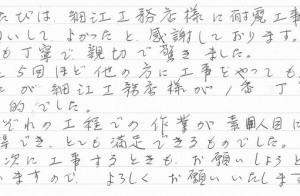 たびは、細江工務店様に耐震工事
いして、よかったと、感謝しております。
も丁寧で、親切で驚きました。
に5回ほど他の方に工事をやっても
が細江工務店様が1番 丁
的でした。
ぞれの工程での作業が素人目に
得でき、とても満足できるものでした。
次に工事するときも、お願いしようと
いますので、よろしくお願いいたしま